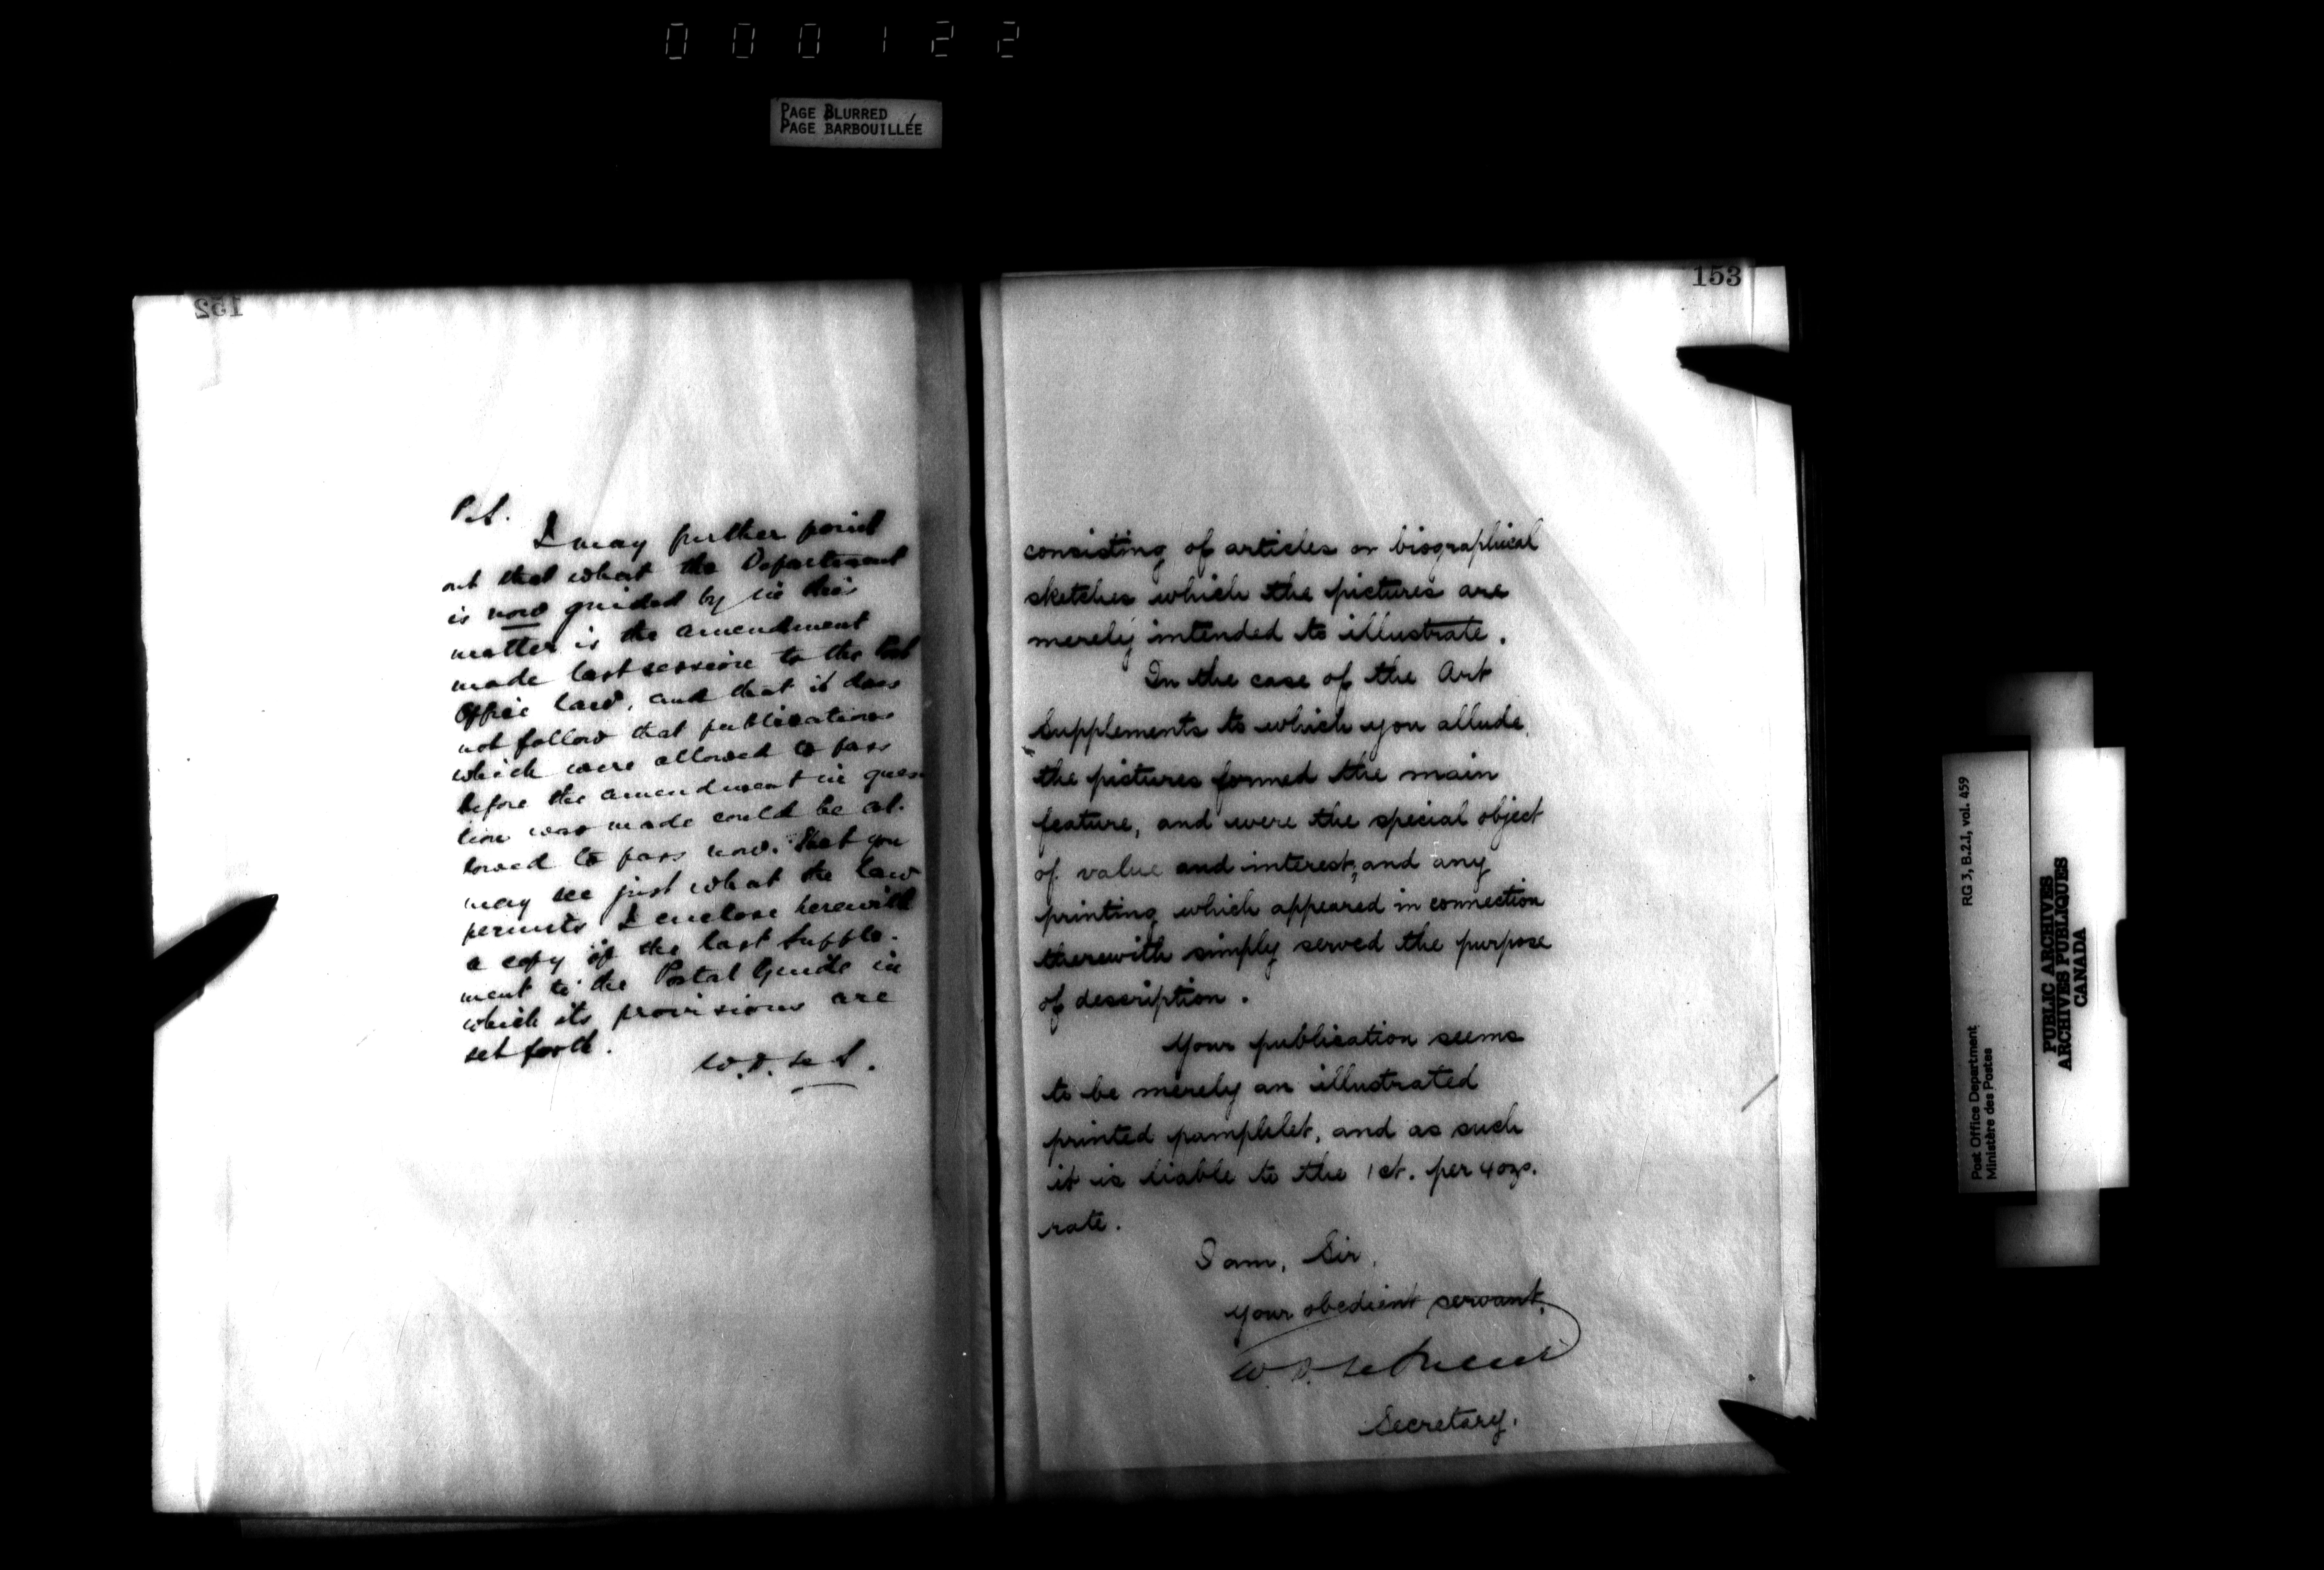 0 0 0 1 2 2
PAGE BLURRED
PAGE BARBOUILLÉE
152
P.S.
I may further point
out that what the Department
is now guided by in this
matter is the amendment
made last session to the Post
Office law, and that it does
not follow that publications
which were allowed to pass
before the amendment in ques-
tion was made could be al-
lowed to pass now. That you
may see just what the law
permits I enclose herewith
a copy of the last Supple-
ment to the Postal Guide in
which its provisions are
set forth.
W.D. LeS.
153
consisting of articles or biographical
sketches which the pictures are
merely intended to illustrate.
In the case of the Art
Supplements to which you allude,
the pictures formed the main
feature, and were the special object
of value and interest; and any
printing which appeared in connection
therewith simply served the purpose
of description.
Your publication seems
to be merely an illustrated
printed pamphlet, and as such
it is liable to the 1 ct. per 4 ozs.
rate.
I am, Sir,
Your obedient servant,
W. D. LeSueur
Secretary.
RG 3, B.2.1, vol. 459
Post Office Department
Ministère des Postes
PUBLIC ARCHIVES
ARCHIVES PUBLIQUES
CANADA